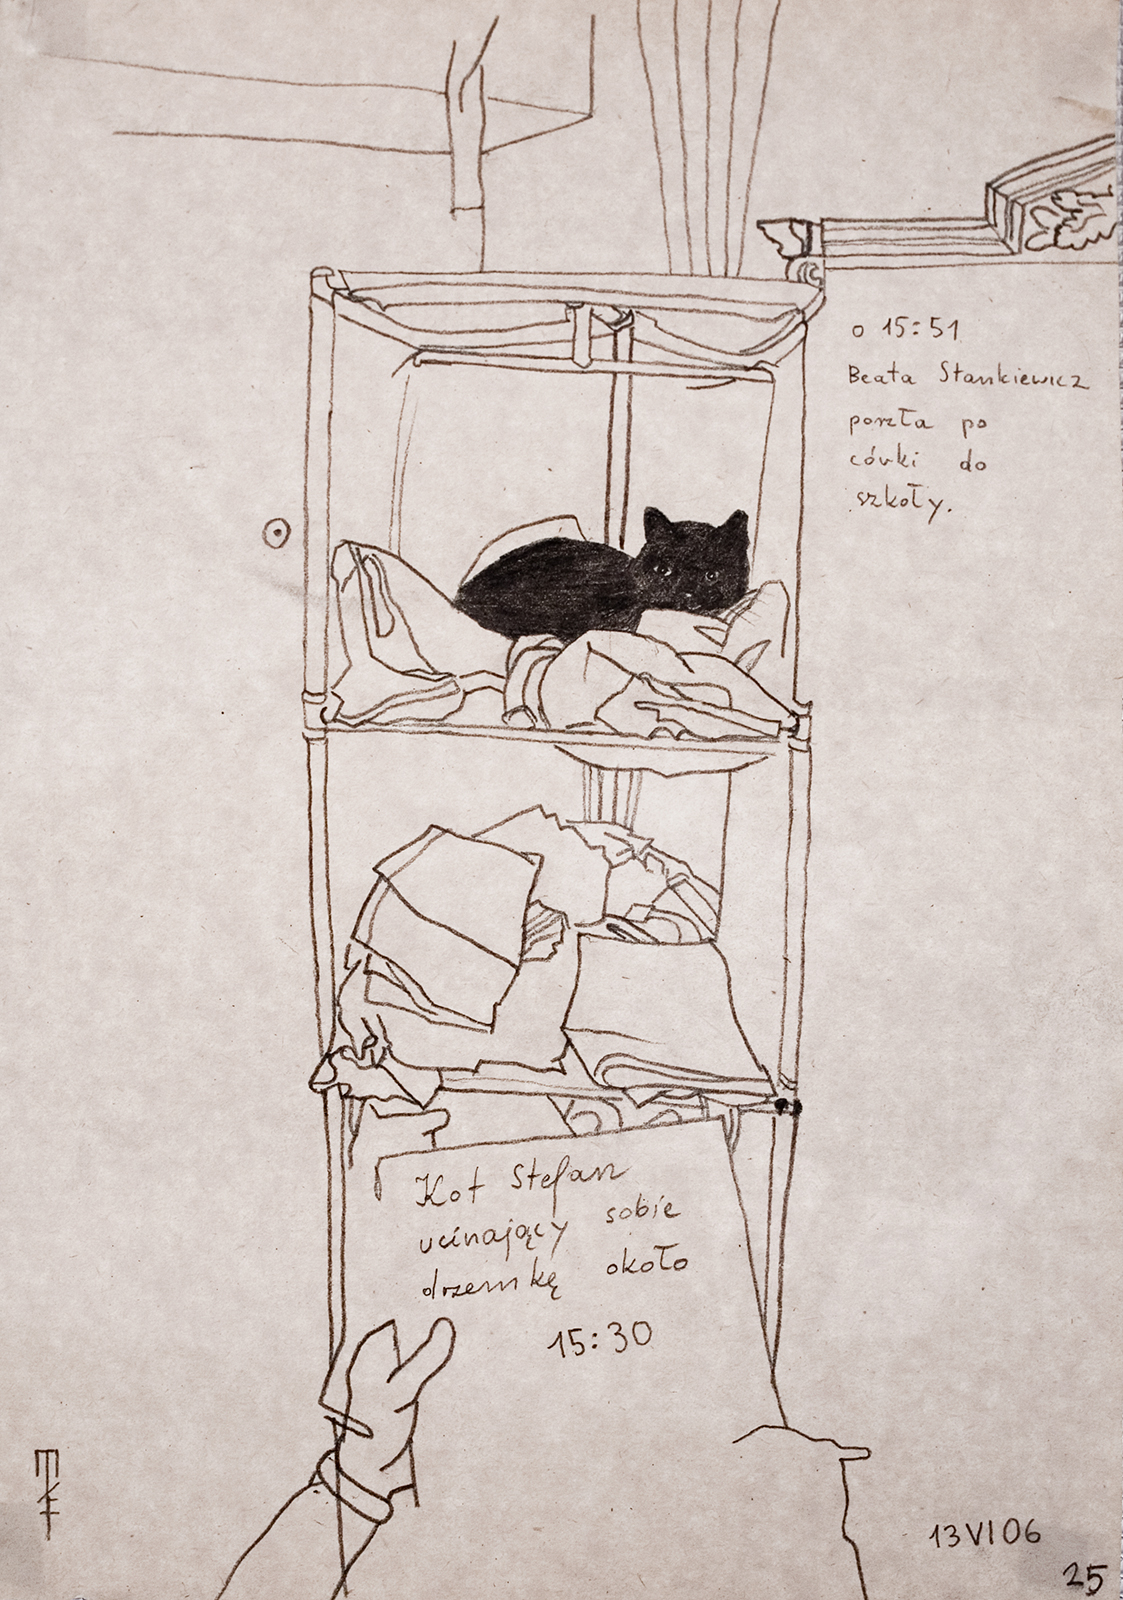 o 15:51
Beata Stankiewicz
poszła po
córki do
szkoły.
Kot Stefan
ucinający sobie
drzemkę około
15:30
13 VI 06
25